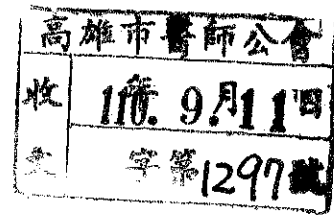 高雄市醫師公會
收 110. 9.月11日
文 字第1297號